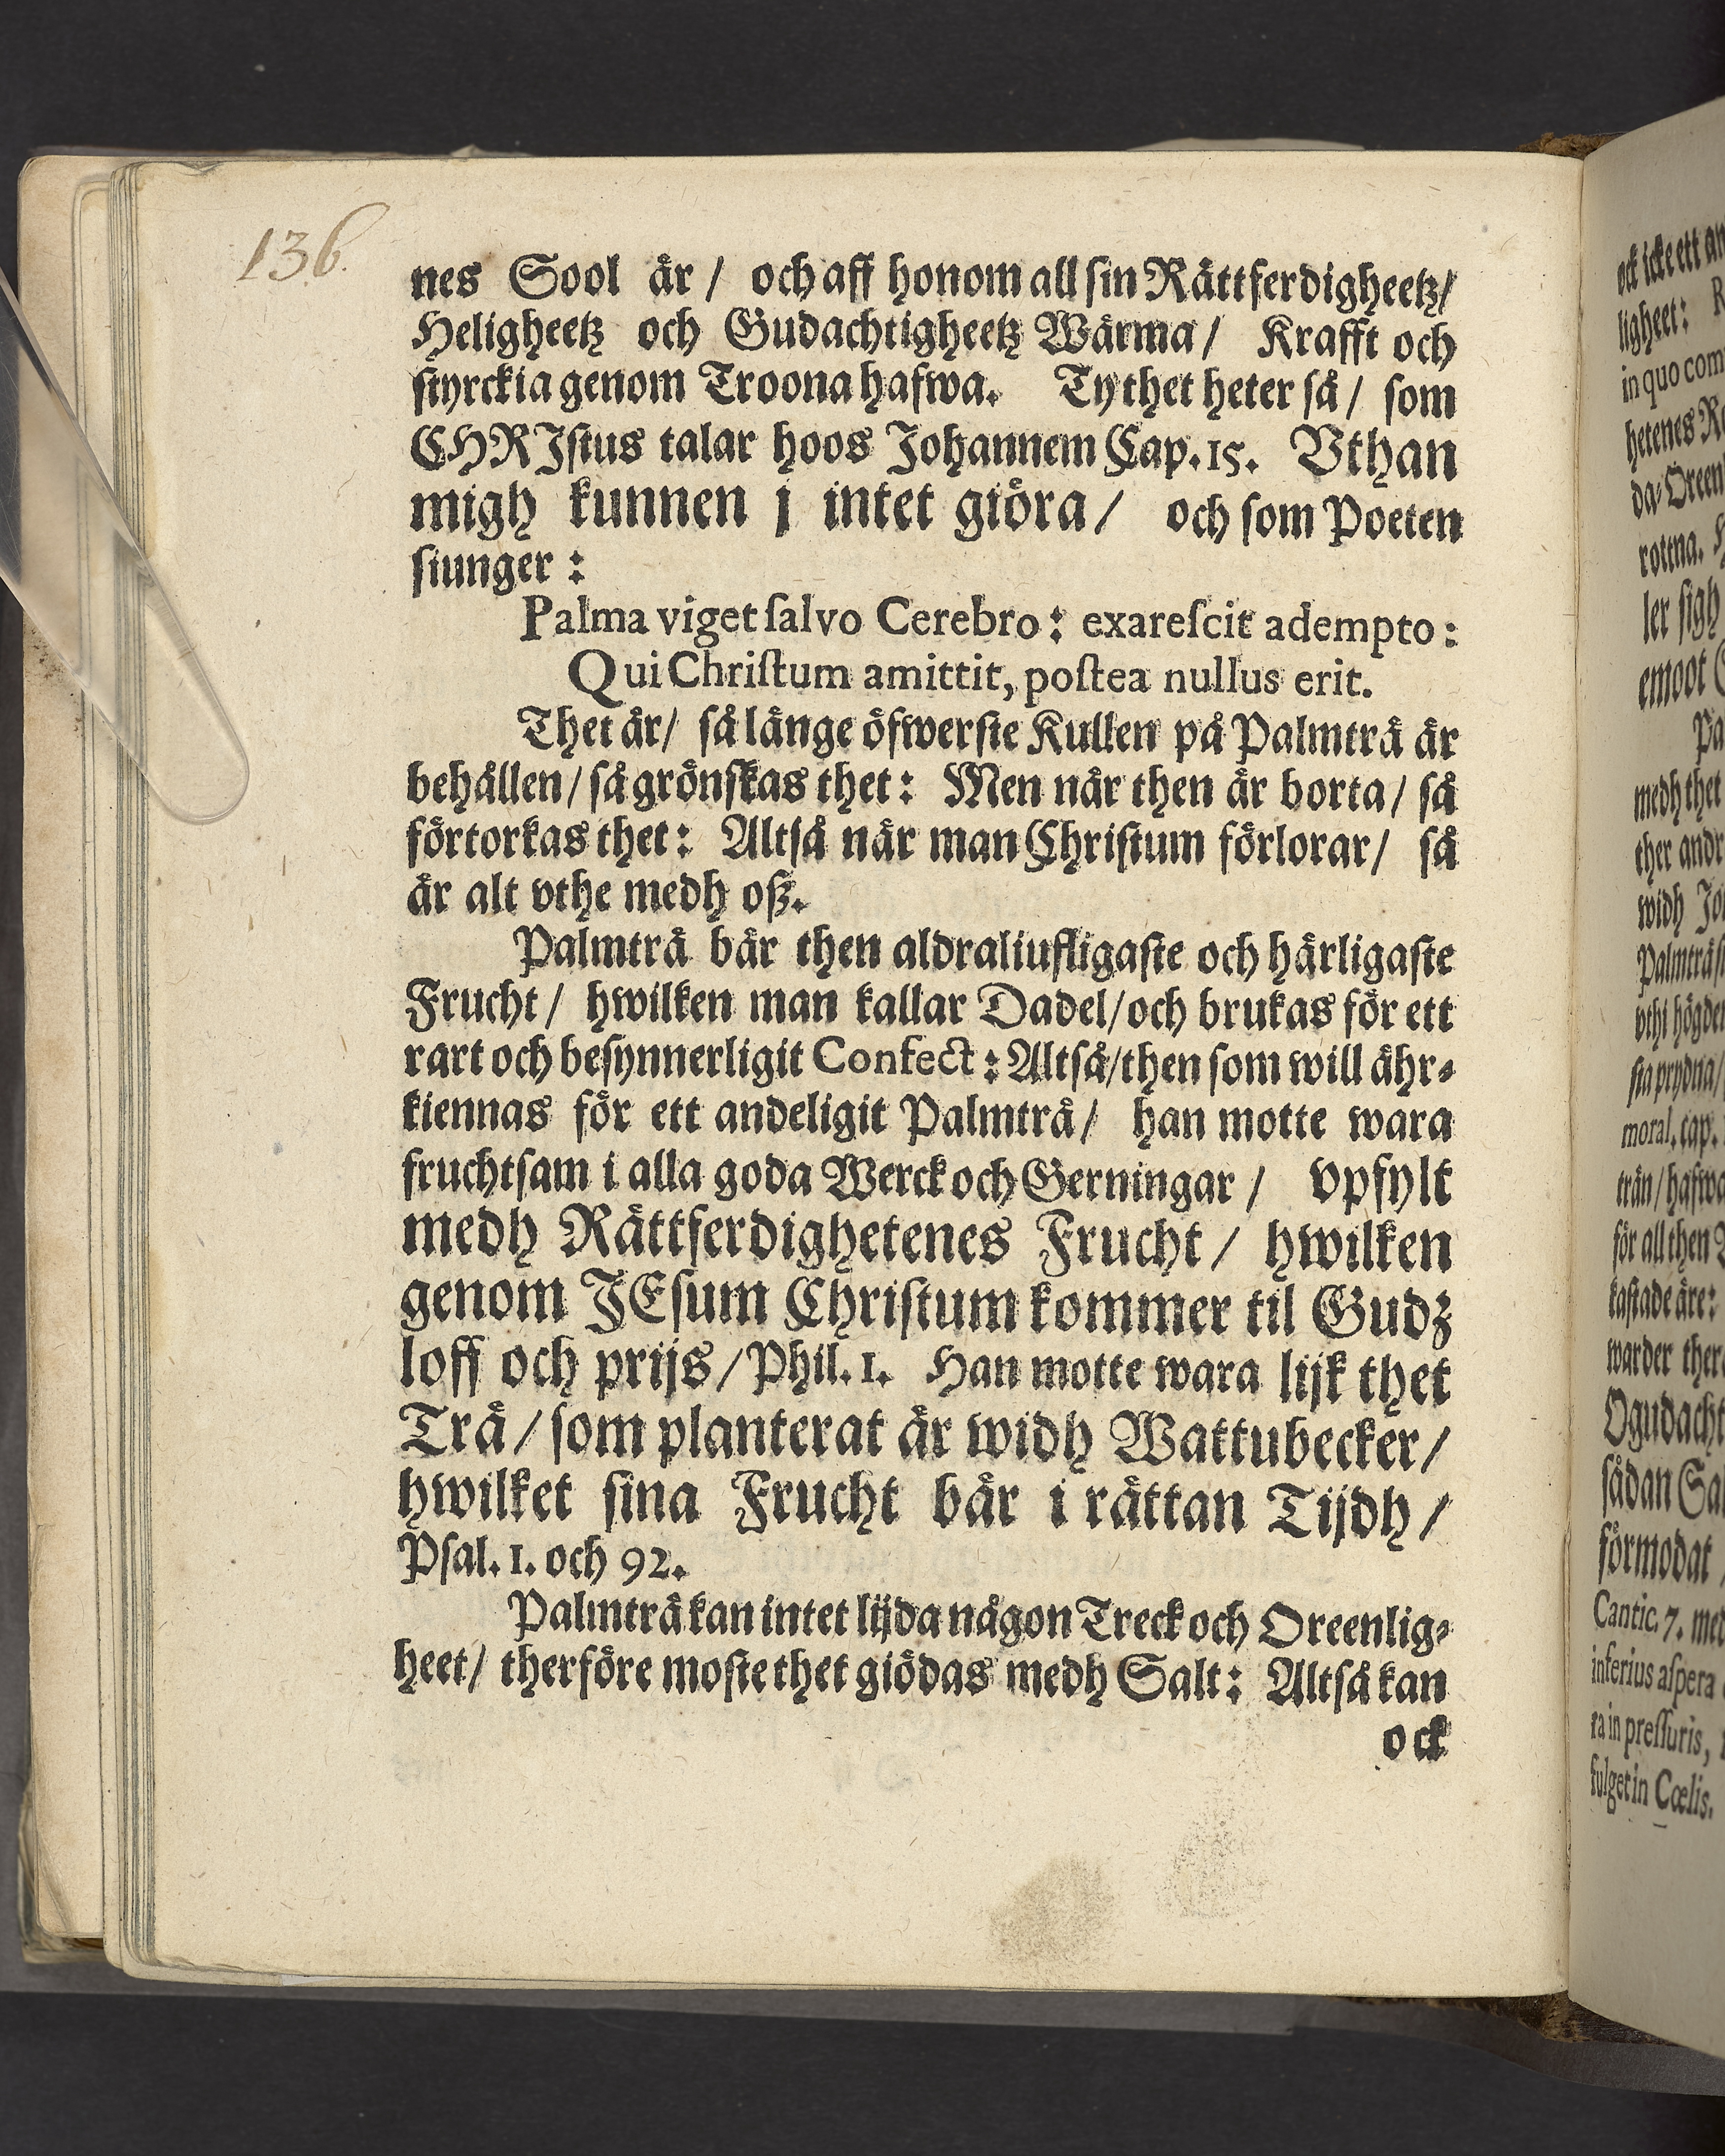 136.
nes Sool är / och aff honom all sin Rättferdigheetz/
Heligheetz och Gudachtigheetz Wärma / Krafft och
styrckia genom Troona hafwa. Ty thet heter så / som
CHRIstus talar hoos Johannem Cap. 15. Vthan
migh kunnen j intet giöra / och som Poeten
siunger :
Palma viget ſalvo Cerebro : exareſcit adempto :
Qui Chriſtum amittit, poſtea nullus erit.
Thet är / så länge öfwerste Kullen på Palmträ är
behållen / så grönskas thet : Men när then är borta / så
förtorkas thet : Altså när man Christum förlorar / så
är alt vthe medh oß.
Palmträ bär then aldraliufligaste och härligaste
Frucht / hwilken man kallar Dadel / och brukas för ett
rart och besynnerligit Confect : Altså / then som will ähr-
kiennas för ett andeligit Palmträ / han motte wara
fruchtsam i alla goda Werck och Gerningar / vpfylt
medh Rättferdighetenes Frucht / hwilken
genom JEsum Christum kommer til Gudz
loff och prijs / Phil. 1. Han motte wara lijk thet
Trä / som planterat är widh Wattubecker /
hwilket sina Frucht bär i rättan Tijdh /
Psal. 1. och 92.
Palmträ kan intet lijda någon Treck och Oreenlig-
heet / therföre moste thet giödas medh Salt : Altså kan
ock
ock icke ett
ligheet :
in quo
hetenes
rottna.
ler sigh
emoot
medh thet
ther
widh
vthi
sta prydna /
moral. cap.
trän / hafwa
för all then
kastade äre :
warder
sådan
förmodat
Cantic. 7.
inferius aſpera
ra in preſſuris,
fulget in Cœlis.